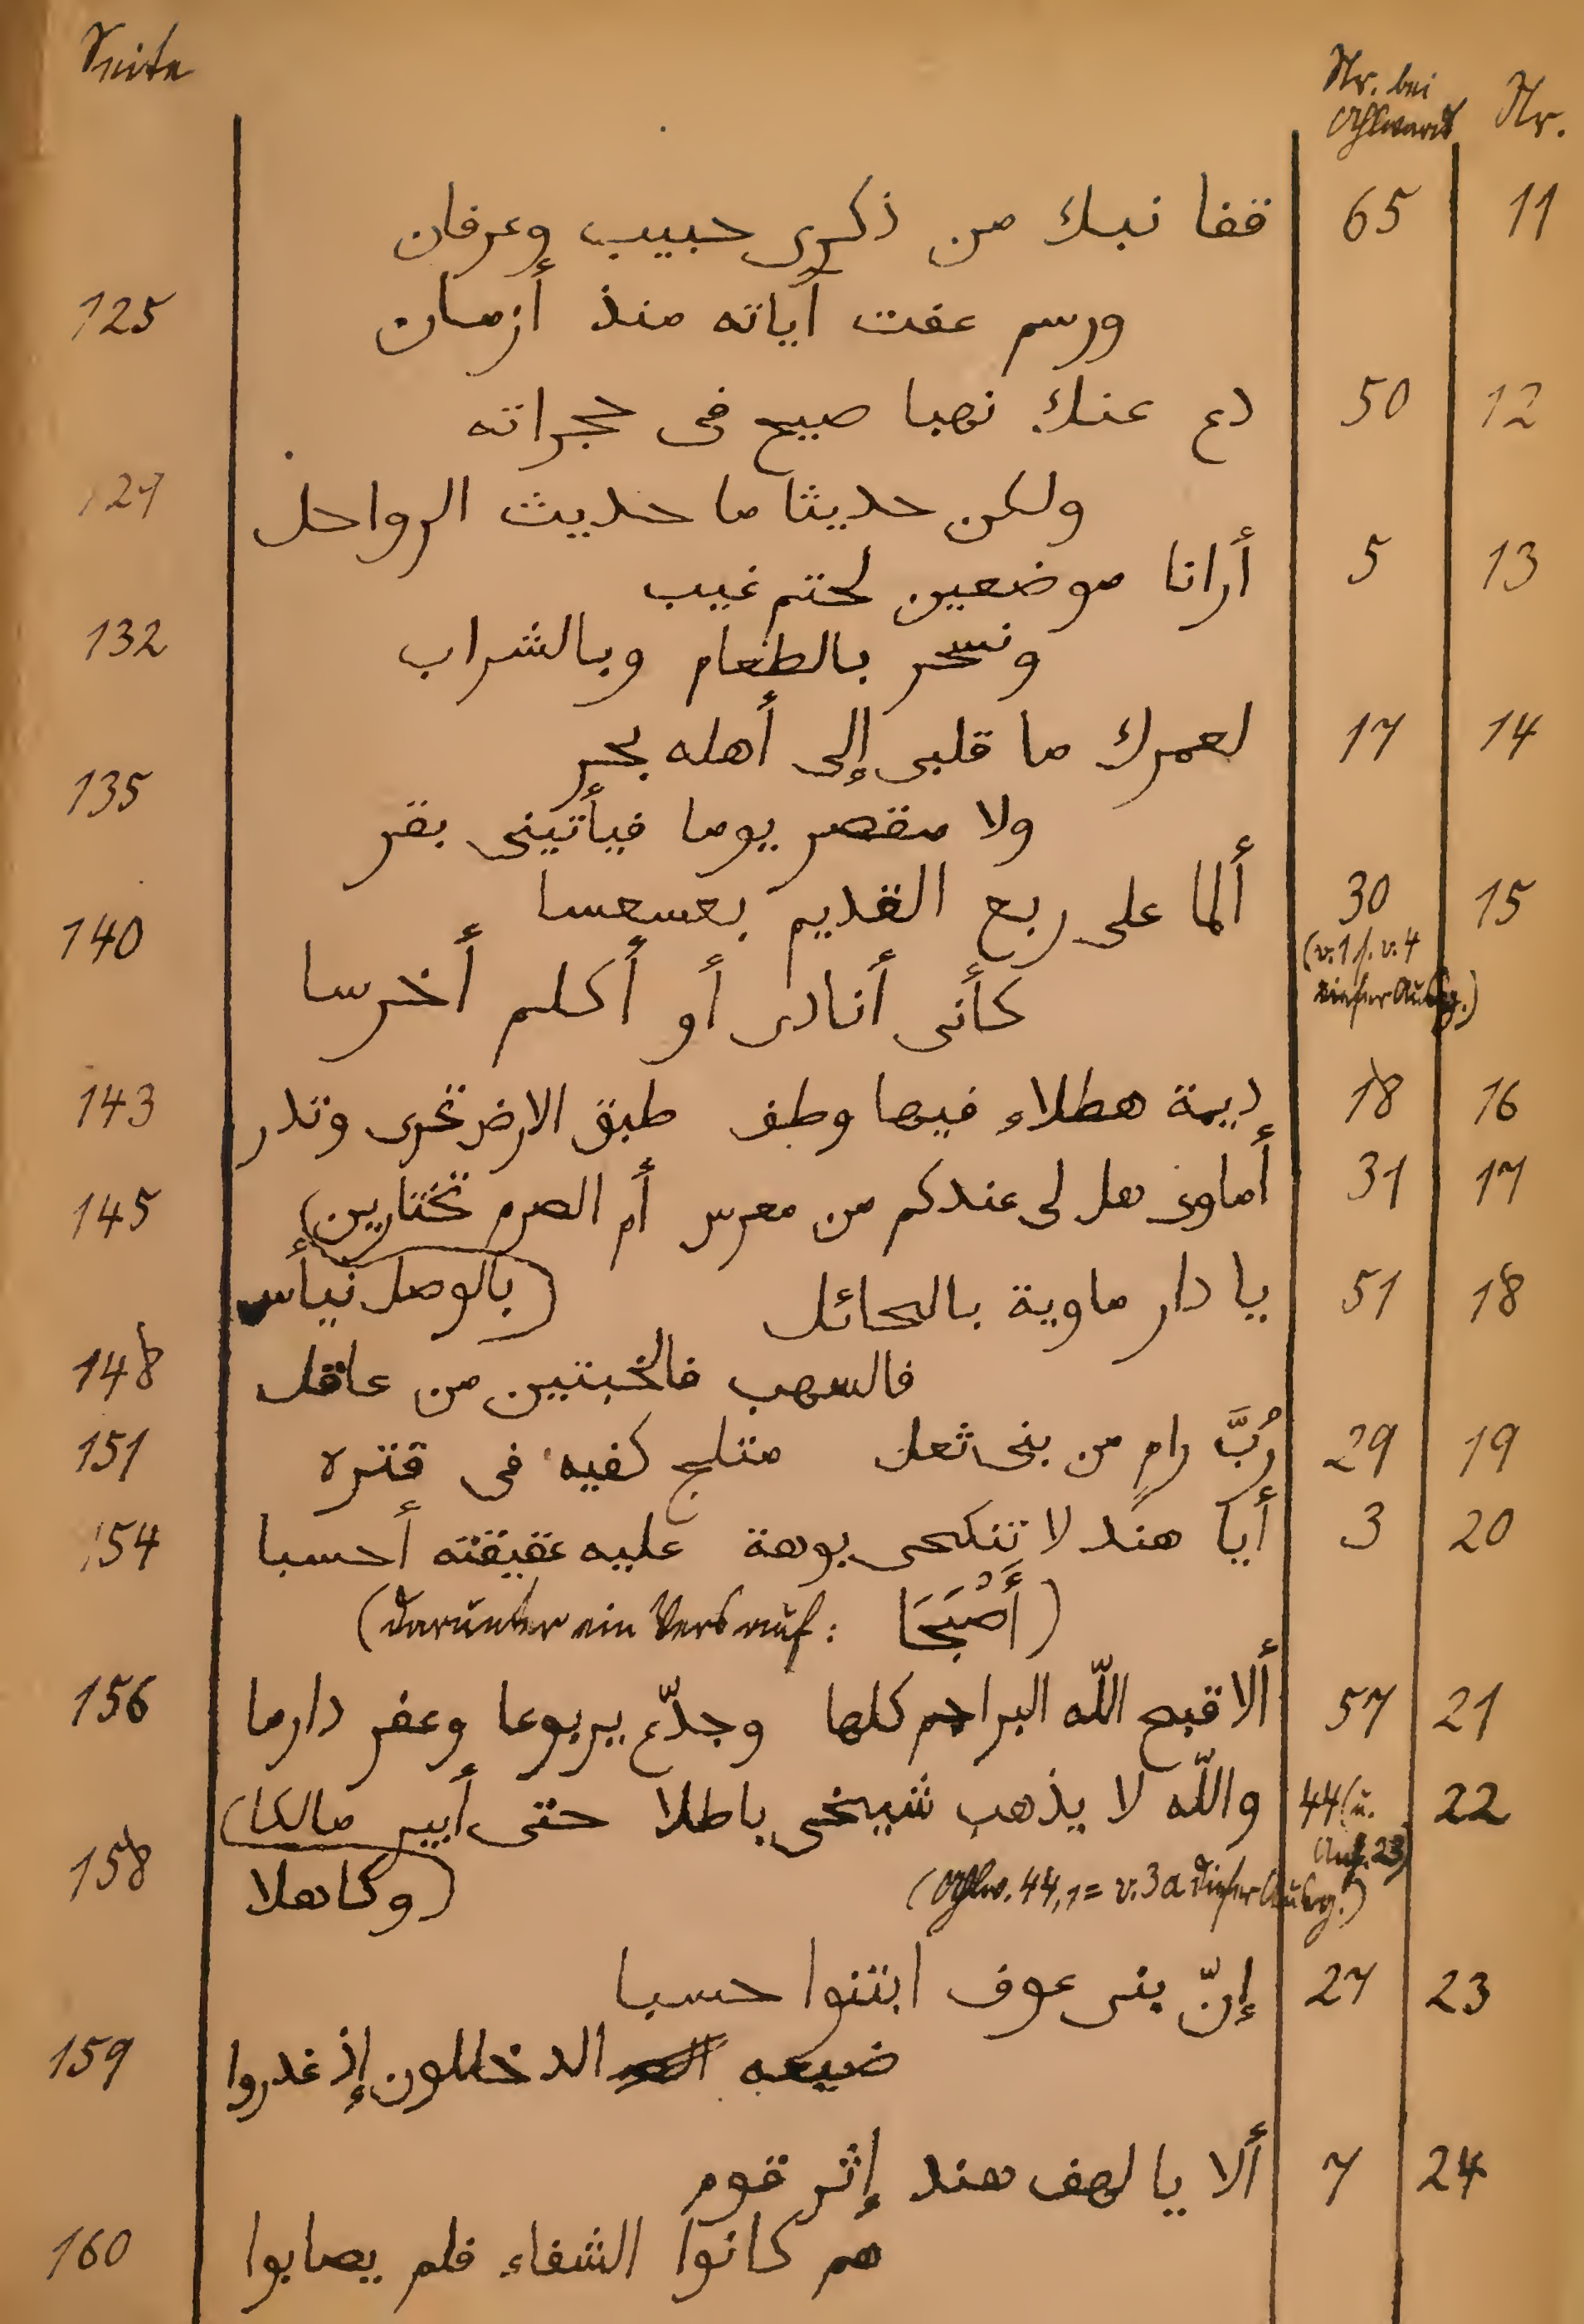 Seite Nr. bei Nr.
Ahlwardt
11 65 قفا نبك من ذكرى حبيب وعرفان
ورسم عفت آياته منذ أزمان 125
12 50 دع عنك نهبا صيح فى حجراته
ولكن حديثا ما حديث الرواحل 127
13 5 أرانا موضعين لحتم غيب
ونسحر بالطعام وبالشراب 132
14 17 لعمرك ما قلبى إلى أهله بحر
ولا مقصر يوما فيأتينى بقر 135
15 30 ألما على ربع القديم بعسعسا
(v. 1 s. v. 4
dieser Ausg.) كأنى أنادى أو أكلم أخرسا 140
16 18 ديمة هطلاء فيها وطف طبق الارض تحرى وتدر 143
17 31 أماوى هل لى عندكم من معرس أم الصرم تختارين) 145
(بالوصل نيأس
18 51 يا دار ماوية بالحائل
فالسهب فالخبتين من عاقل 148
19 29 رُبَّ رامٍ من بنى ثعل متلج كفيه فى قتره 151
20 3 أيا هند لا تنكحى بوهة عليه عقيقته أحسبا 154
(darunter ein Vers auf: أَصْبَحَا)
21 57 ألا قبح اللّه البراجم كلها وجدّع يربوعا وعفر دارما 156
22 44 (u. والله لا يذهب شيخى باطلا حتى أبير مالكا)
Anh. 23)
(وكاهلا 158
(Ahlw. 44,1 = v. 3a dieser Ausg.)
23 27 إنّ بنى عوف ابتنوا حسبا
ضيعه الدخللون إذ غدروا 159
24 7 ألا يا لهف هند إثر قوم
هم كانوا الشفاء فلم يصابوا 160